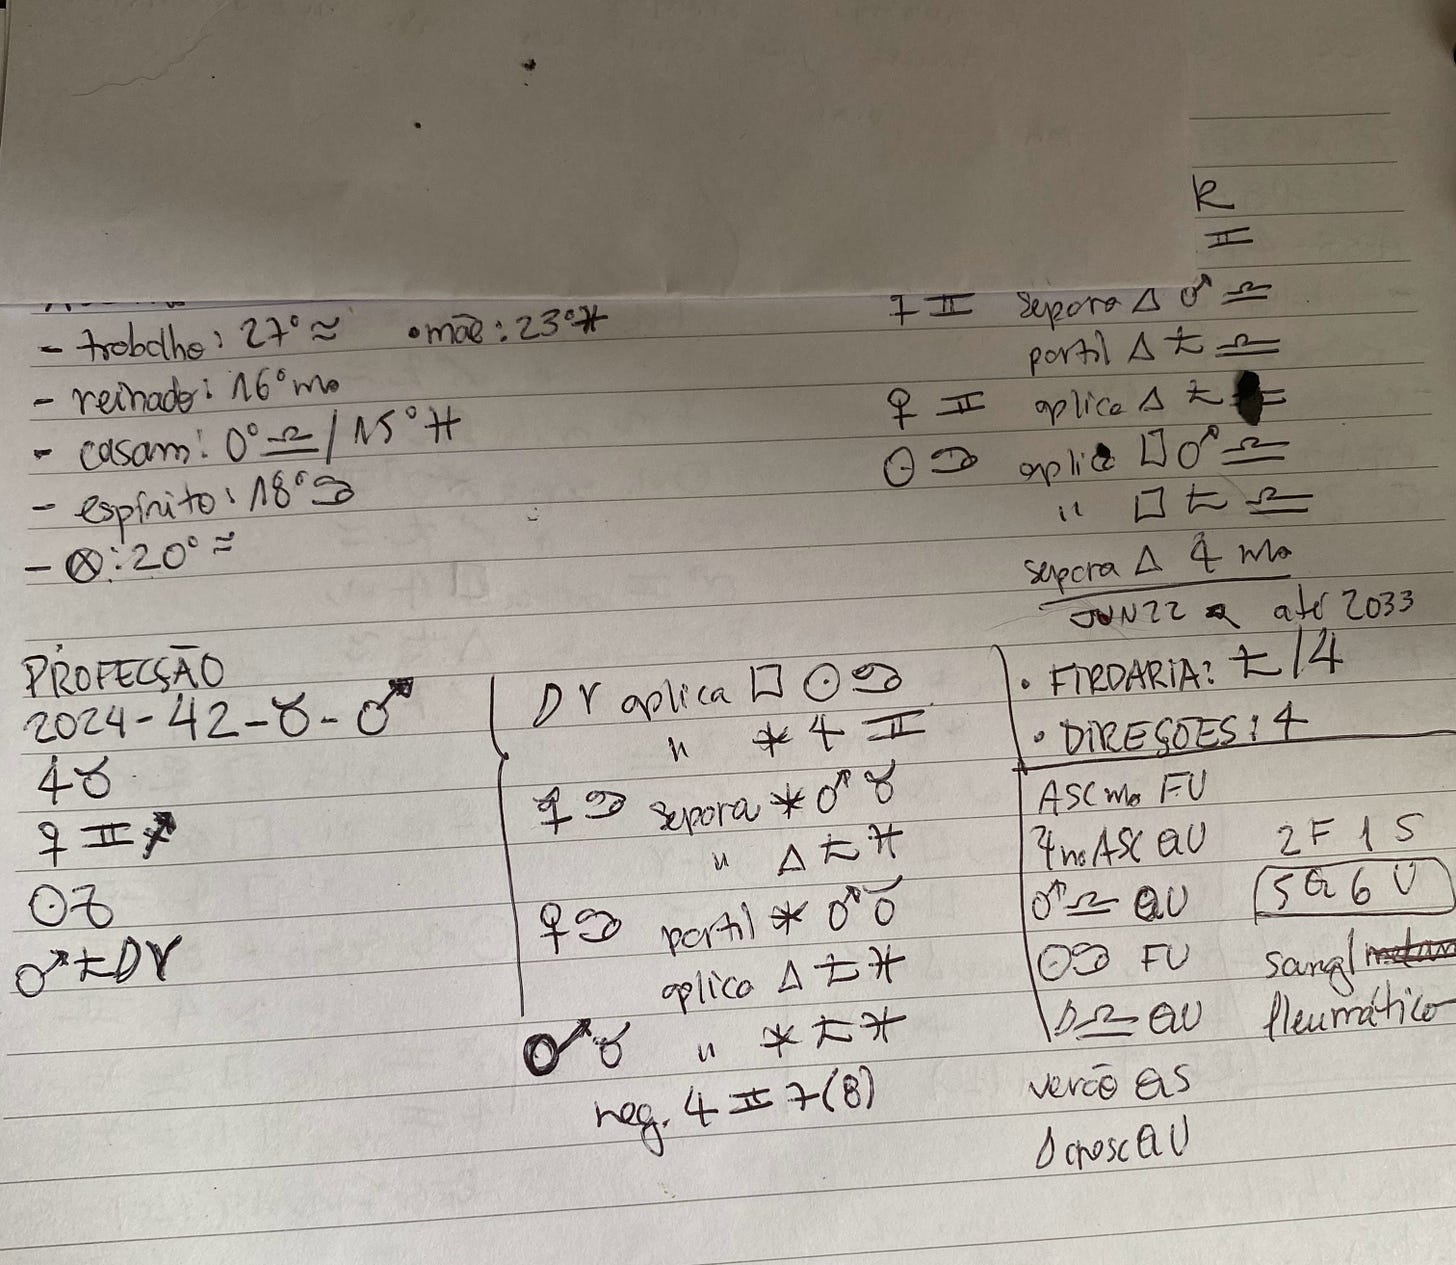 R
♊
- trabalho: 27° ♒ • mãe: 23° ♓
- reinado: 16° ♏
- casam: 0° ♎ / 15° ♓
- espírito: 18° ♋
- ⊗: 20° ♒
☿ ♊ separa △ ♂ ♎
partil △ ♄ ♎
♀ ♊ aplica △ ♄ ♎
☉ ♋ aplica □ ♂ ♎
" □ ♄ ♎
separa △ ♃ ♏
JUN22 até 2033
PROFECÇÃO
2024 - 42 - ♉ - ♂
♃ ♉
☿ ♊
☉ ♉
♂ ♄ ☽ ♈
☽ ♈ aplica □ ☉ ♋
" ✶ ♃ ♊
☿ ♋ separa ✶ ♂ ♉
" △ ♄ ♓
♀ ♋ partil ✶ ♂ ♉
aplica △ ♄ ♓
♂ ♉ " ✶ ♄ ♓
neg. ♃ ♊ 7 (8)
• FIRDARIA: ♄ / ♃
• DIREÇÕES: ♃
ASC ♏ FU
♃ no ASC QU 2F 1S
♂ ♎ QU 5Q 6U
☉ ♋ FU sang/
☽ ♎ QU fleumático
verão QS
☽ cresc QU